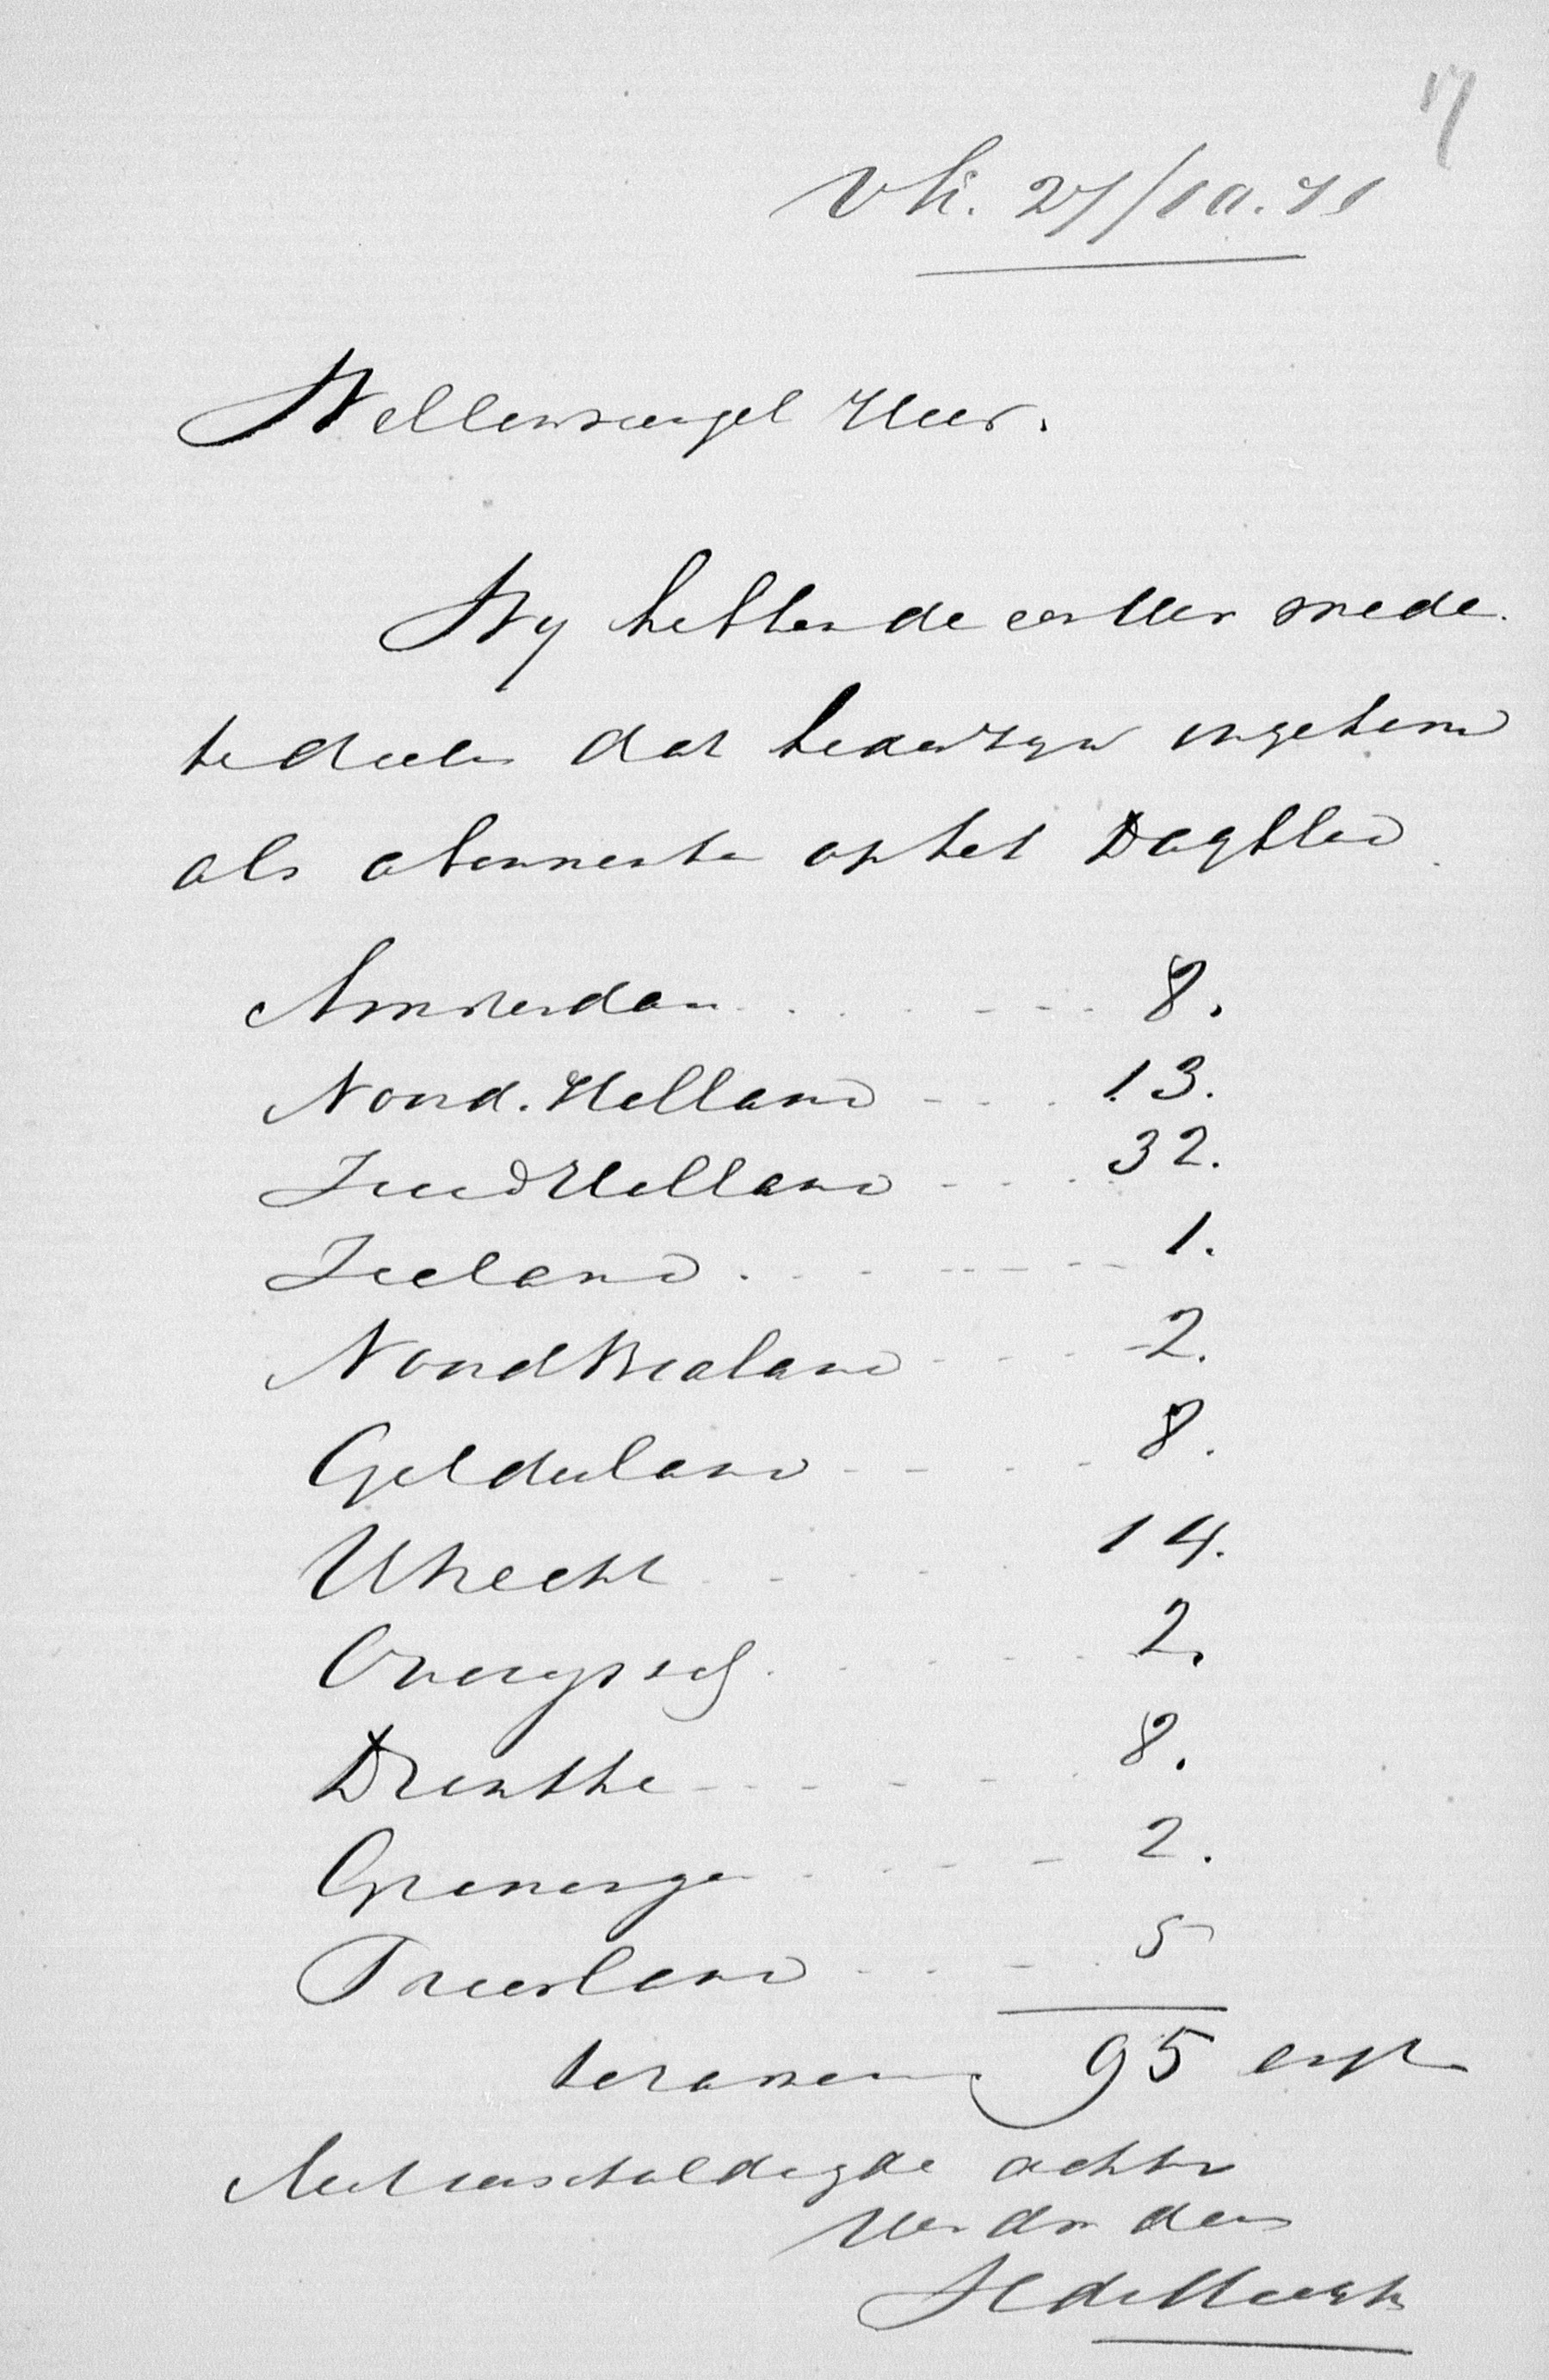 17
Uti. 27/10.71
Weledenengel Heer.
Wy hebben de eer Uw mede
te deelen dat heden zyn ingekomen
als abonnenten op het Dagblad
Amsterdam 8.
Noord. Holland 13.
Zuid Holland 32.
Zeeland 1.
Noord Braband 2.
Gelderland 8.
Utrecht 14.
Overyssel 2.
Drenthe 8.
Groningen 2.
Friesland 5
te zamen 95 expl
Met verschuldigde achting
Uw dw dien